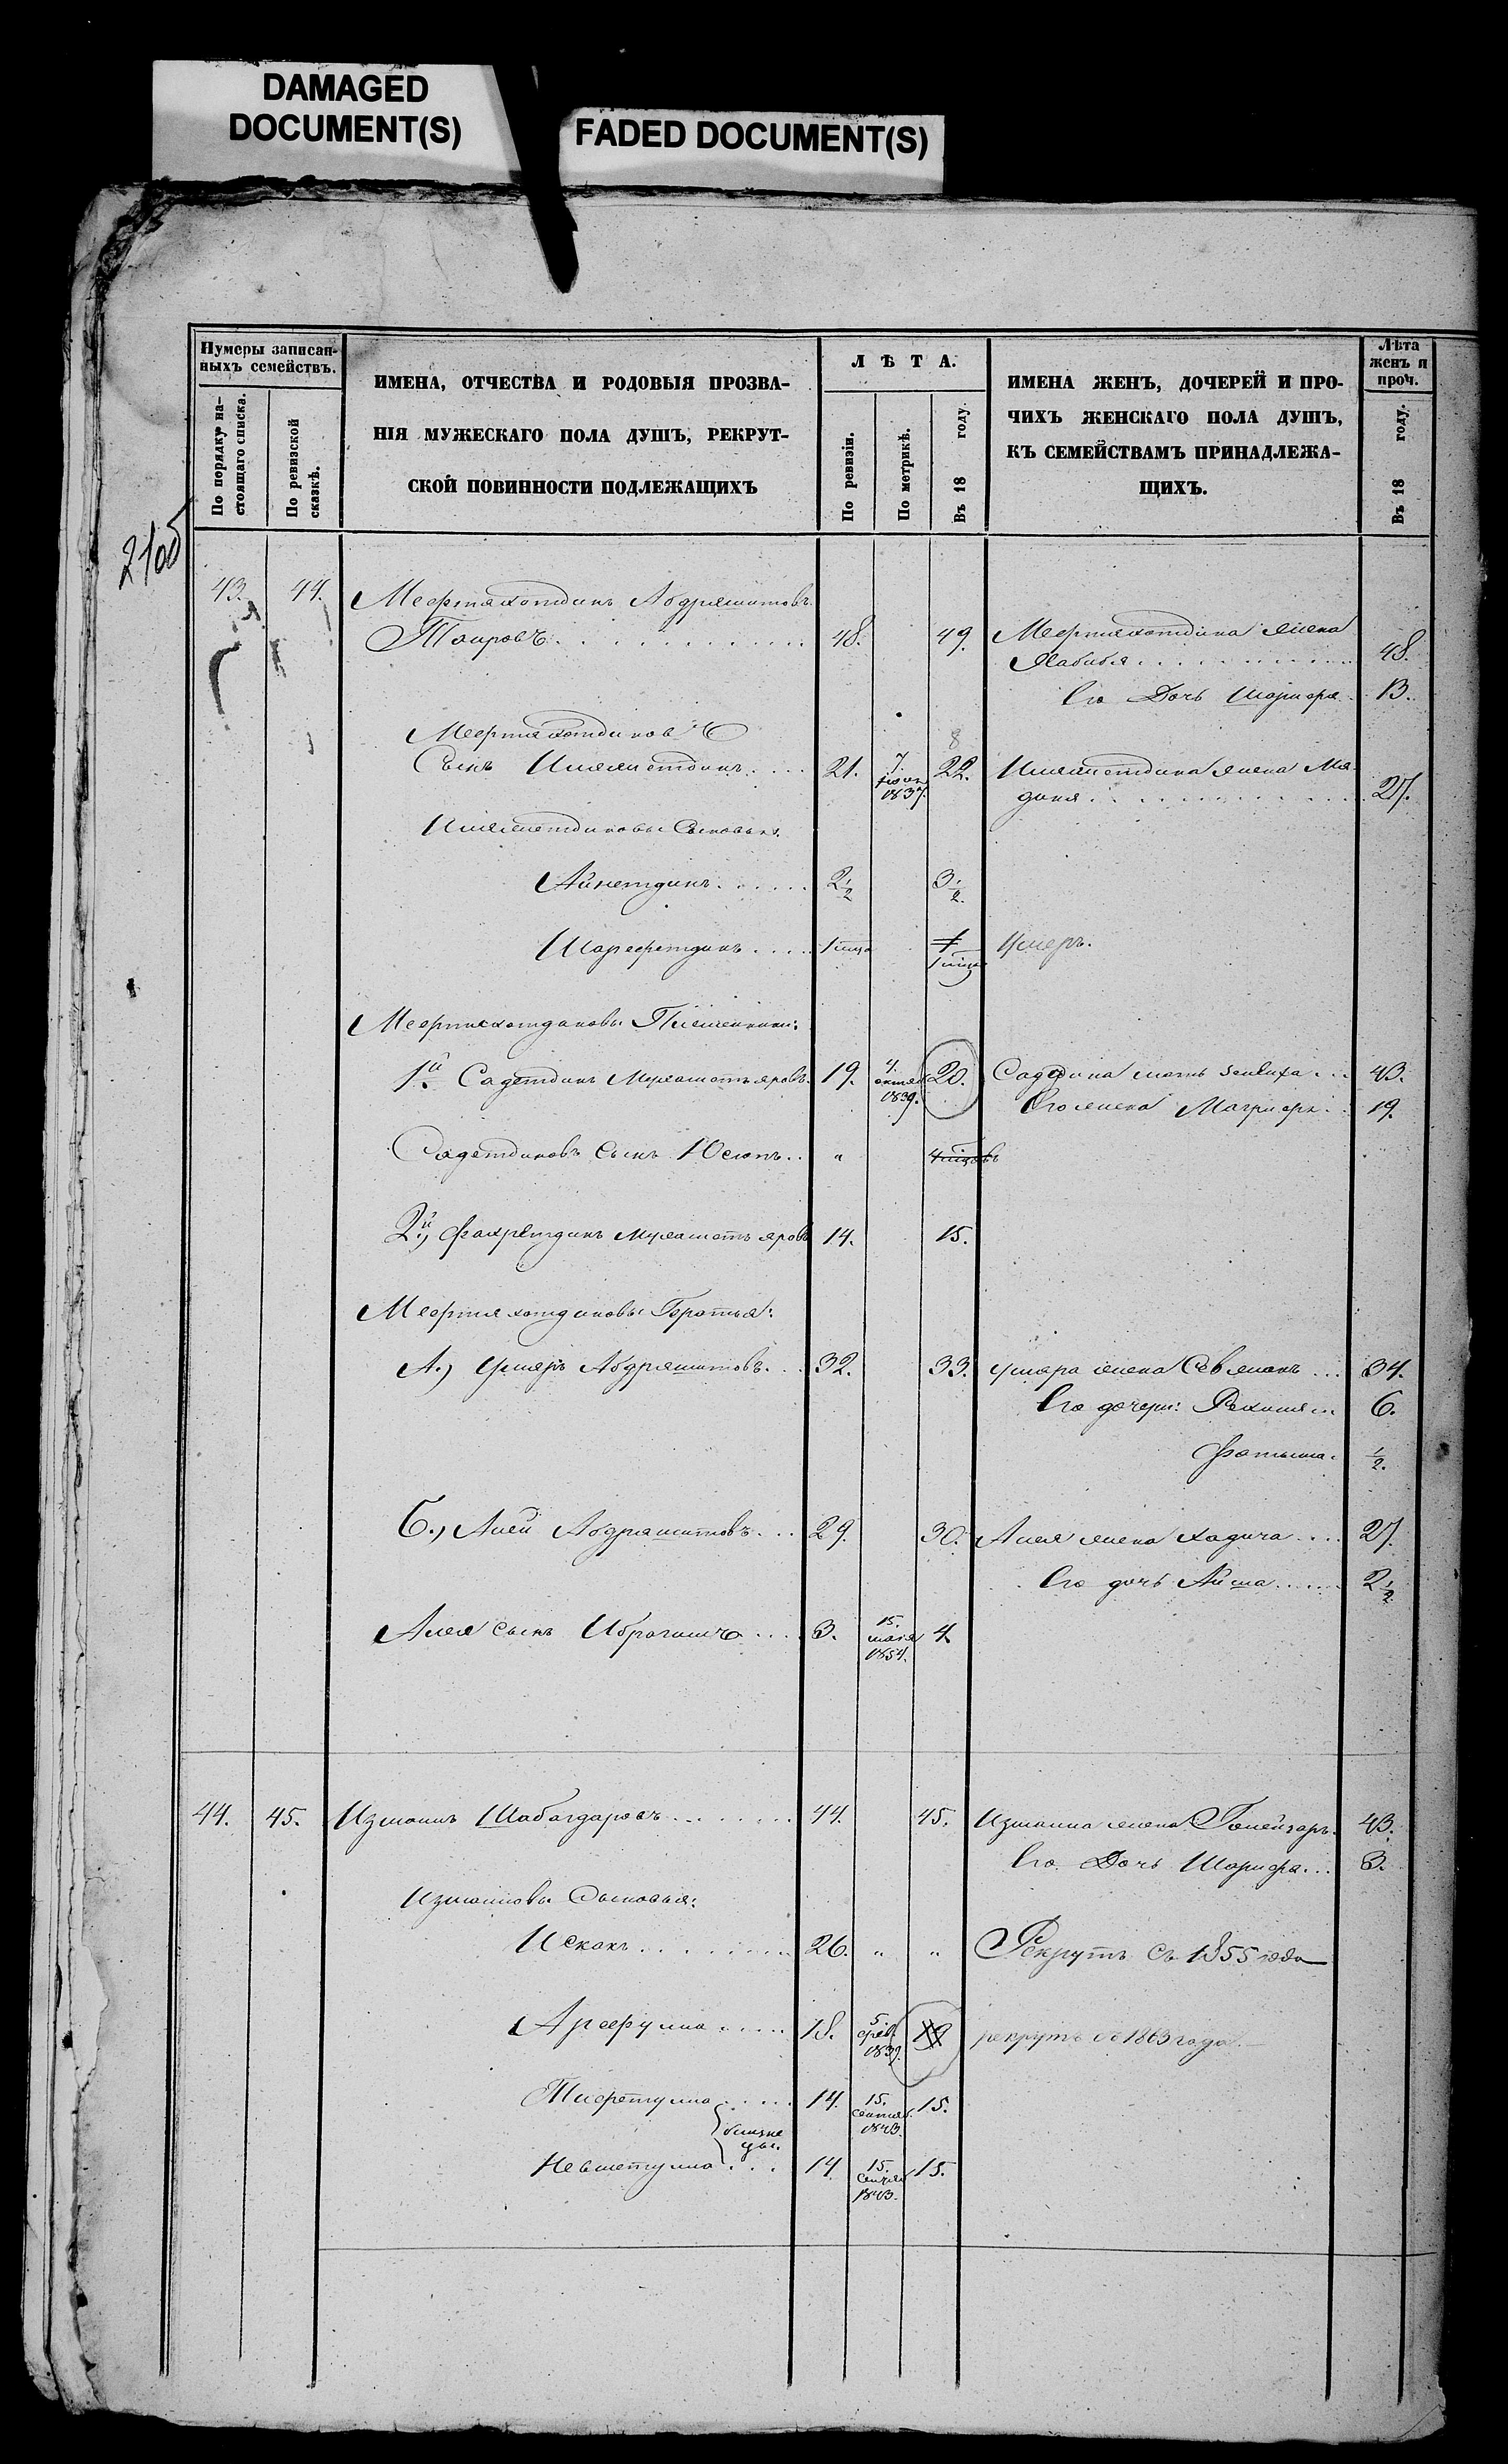 DAMAGED
DOCUMENT(S)
FADED DOCUMENT(S)
Нумеры записан-
ныхъ семействъ.
По порядку на-
стоящаго списка.
По ревизской
сказкѣ.
ИМЕНА, ОТЧЕСТВА И РОДОВЫЯ ПРОЗВА-
НІЯ МУЖЕСКАГО ПОЛА ДУШЪ, РЕКРУТ-
СКОЙ ПОВИННОСТИ ПОДЛЕЖАЩИХЪ
ЛѢТА.
По ревизіи.
По метрикѣ.
Въ 18 году.
ИМЕНА ЖЕНЪ, ДОЧЕРЕЙ И ПРО-
ЧИХЪ ЖЕНСКАГО ПОЛА ДУШЪ,
КЪ СЕМЕЙСТВАМЪ ПРИНАДЛЕЖА-
ЩИХЪ.
Лѣта
женъ и
проч.
Въ 18 году.
43. 44. Мефтяхотдинъ Абдряшитовъ
Таировъ 48. 49. Мефтяхотдина жена
Хабибя 48.
Его Дочь Шарифа 13.
Мефтяхотдиновъ
Сынъ Имаметдинъ 21. 7. 1837. 22. Имаметдина жена Мя-
дина 27.
Имаметдиновы Сыновья:
Айнетдинъ 2½ 3½.
Шарефетдинъ Умеръ.
Мефтяхотдиновы Племянники:
1й Садетдинъ 19. 4. октяб 1839. 20. мать Зюлиха 43.
Его жена Магрифа 19.
Садетдиновъ сынъ Юсюпъ "
2й, Фахретдинъ 14. 15.
Мефтяхотдиновы Братья:
А.) Умяръ Абдряшитовъ 32. 33. Умяра жена 34.
Его дочери: 6.
Фатыма ½.
Б.) Алей Абдряшитовъ 29. 30. Алея жена Хадича 27.
Его дочь Айша 2½
Алея сынъ Ибрагимъ 3. 15. мая 1854. 4.
44. 45. Измаилъ Шабагдаровъ 44. 45. Измаила жена 43.
Его Дочь Шарифа 3.
Измаиловы Сыновья:
Искакъ 26. " " Рекрутъ съ 1855 года
Арефулла 18. 5. фев. 1839. 19 рекрутъ съ 1863 года.
14. 15. сентяб. 1843. 15.
близне
цы.
14. 15. сентяб 1843. 15.